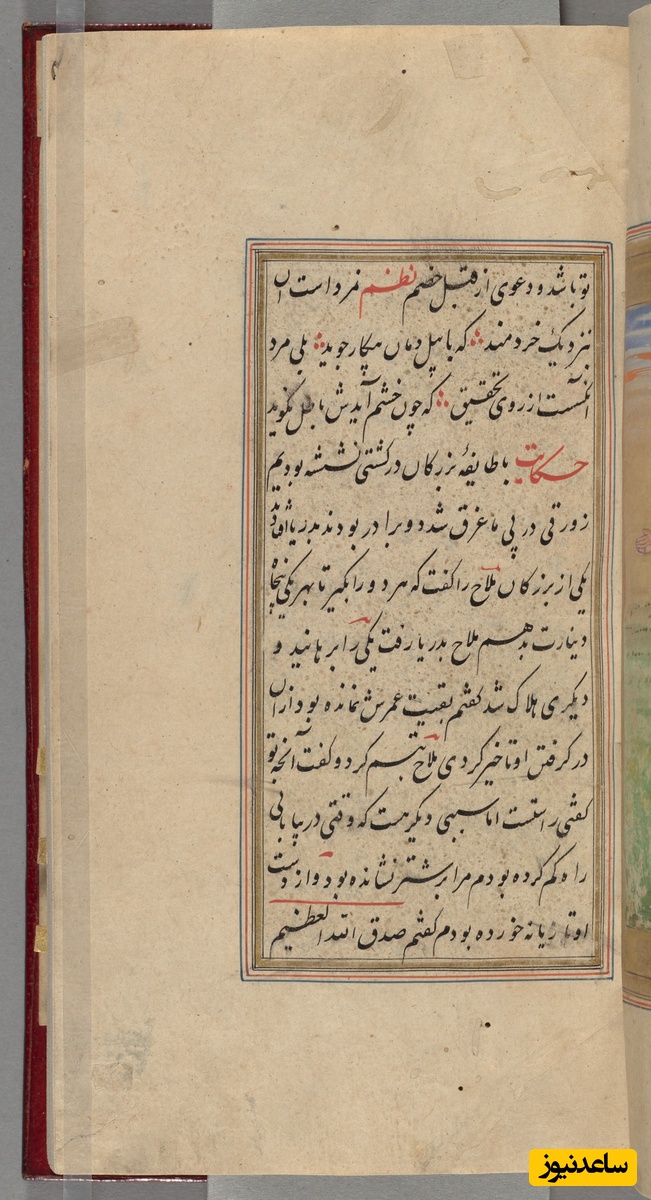 تو باشد و دعوی از قبل خصم نظم نه مرد است آن
نزدیک خردمند که با پیل دمان پیکار جوید بلی مرد
آنکست از روی تحقیق که چون خشم آیدش باطل نگوید
حکایت با طایفهٔ بزرگان در کشتی نشسته بودیم
زورقی در پی ما غرق شد دو برادر بودند بدریا افتادند
یکی از بزرگان ملاح را گفت که هر دو را بگیر تا بهر یکی پنجاه
دینارت بدهم ملاح بدریا رفت یکی را برهانید و
دیگری هلاک شد گفتم بقیت عمرش نمانده بود ازان
در گرفتن او تاخیر کردی ملاح تبسم کرد و گفت آنچه تو
گفتی راستست اما سببی دیگر هست که وقتی در بیابانی
راه گم کرده بودم مرا بر شتر نشانده بود و از دست
او تازیانه خورده بودم گفتم صدق الله العظیم
ساعدنیوز